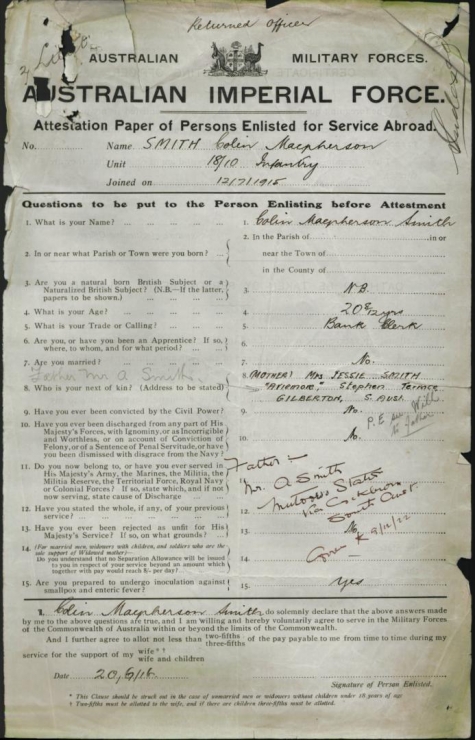 Returned Officer
AUSTRALIAN MILITARY FORCES.
AUSTRALIAN IMPERIAL FORCE.
Attestation Paper of Persons Enlisted for Service Abroad.
No. Name SMITH Colin Macpherson
Unit 18/10 Infantry
Joined on 12/7/1915
Questions to be put to the Person Enlisting before Attestment
1. What is your Name? 1. Colin Macpherson Smith
2. In or near what Parish or Town were you born? 2. In the Parish of in or
near the Town of
in the County of
3. Are you a natural born British Subject or a
Naturalized British Subject? (N.B.—If the latter,
papers to be shown.) 3. N.B.
4. What is your Age? 4. 20 8/12 yrs
5. What is your Trade or Calling? 5. Bank Clerk
6. Are you, or have you been an Apprentice? If so,
where, to whom, and for what period? 6.
7. Are you married? 7. No.
Father Mr A Smith.
8. Who is your next of kin? (Address to be stated) 8. (MOTHER) Mrs JESSIE SMITH
Stephen Terrace
GILBERTON, S. AUS.
9. Have you ever been convicted by the Civil Power? 9. No.
P.E. Will
to Father
10. Have you ever been discharged from any part of His
Majesty's Forces, with Ignominy, or as Incorrigible
and Worthless, or on account of Conviction of
Felony, or of a Sentence of Penal Servitude, or have
you been dismissed with disgrace from the Navy? 10. No.
11. Do you now belong to, or have you ever served in
His Majesty's Army, the Marines, the Militia, the
Militia Reserve, the Territorial Force, Royal Navy
or Colonial Forces? If so, state which, and if not
now serving, state cause of Discharge 11.
Father:-
Mr. A Smith
Mutooroo Station
Via Cockburn
South Aust.
12. Have you stated the whole, if any, of your previous
service? 12.
13. Have you ever been rejected as unfit for His
Majesty's Service? If so, on what grounds? 13. No
9/12/22
14. (For married men, widowers with children, and soldiers who are the
sole support of Widowed mother)—
Do you understand that no Separation Allowance will be issued
to you in respect of your service beyond an amount which
together with pay would reach 8/- per day? 14.
15. Are you prepared to undergo inoculation against
smallpox and enteric fever? 15. Yes
I, Colin Macpherson Smith do solemnly declare that the above answers made
by me to the above questions are true, and I am willing and hereby voluntarily agree to serve in the Military Forces
of the Commonwealth of Australia within or beyond the limits of the Commonwealth.
And I further agree to allot not less than two-fifths three-fifths of the pay payable to me from time to time during my
service for the support of my wife*†
wife and children
Date 20/6/16
Signature of Person Enlisted.
* This Clause should be struck out in the case of unmarried men or widowers without children under 18 years of age
† Two-fifths must be allotted to the wife, and if there are children three-fifths must be allotted.